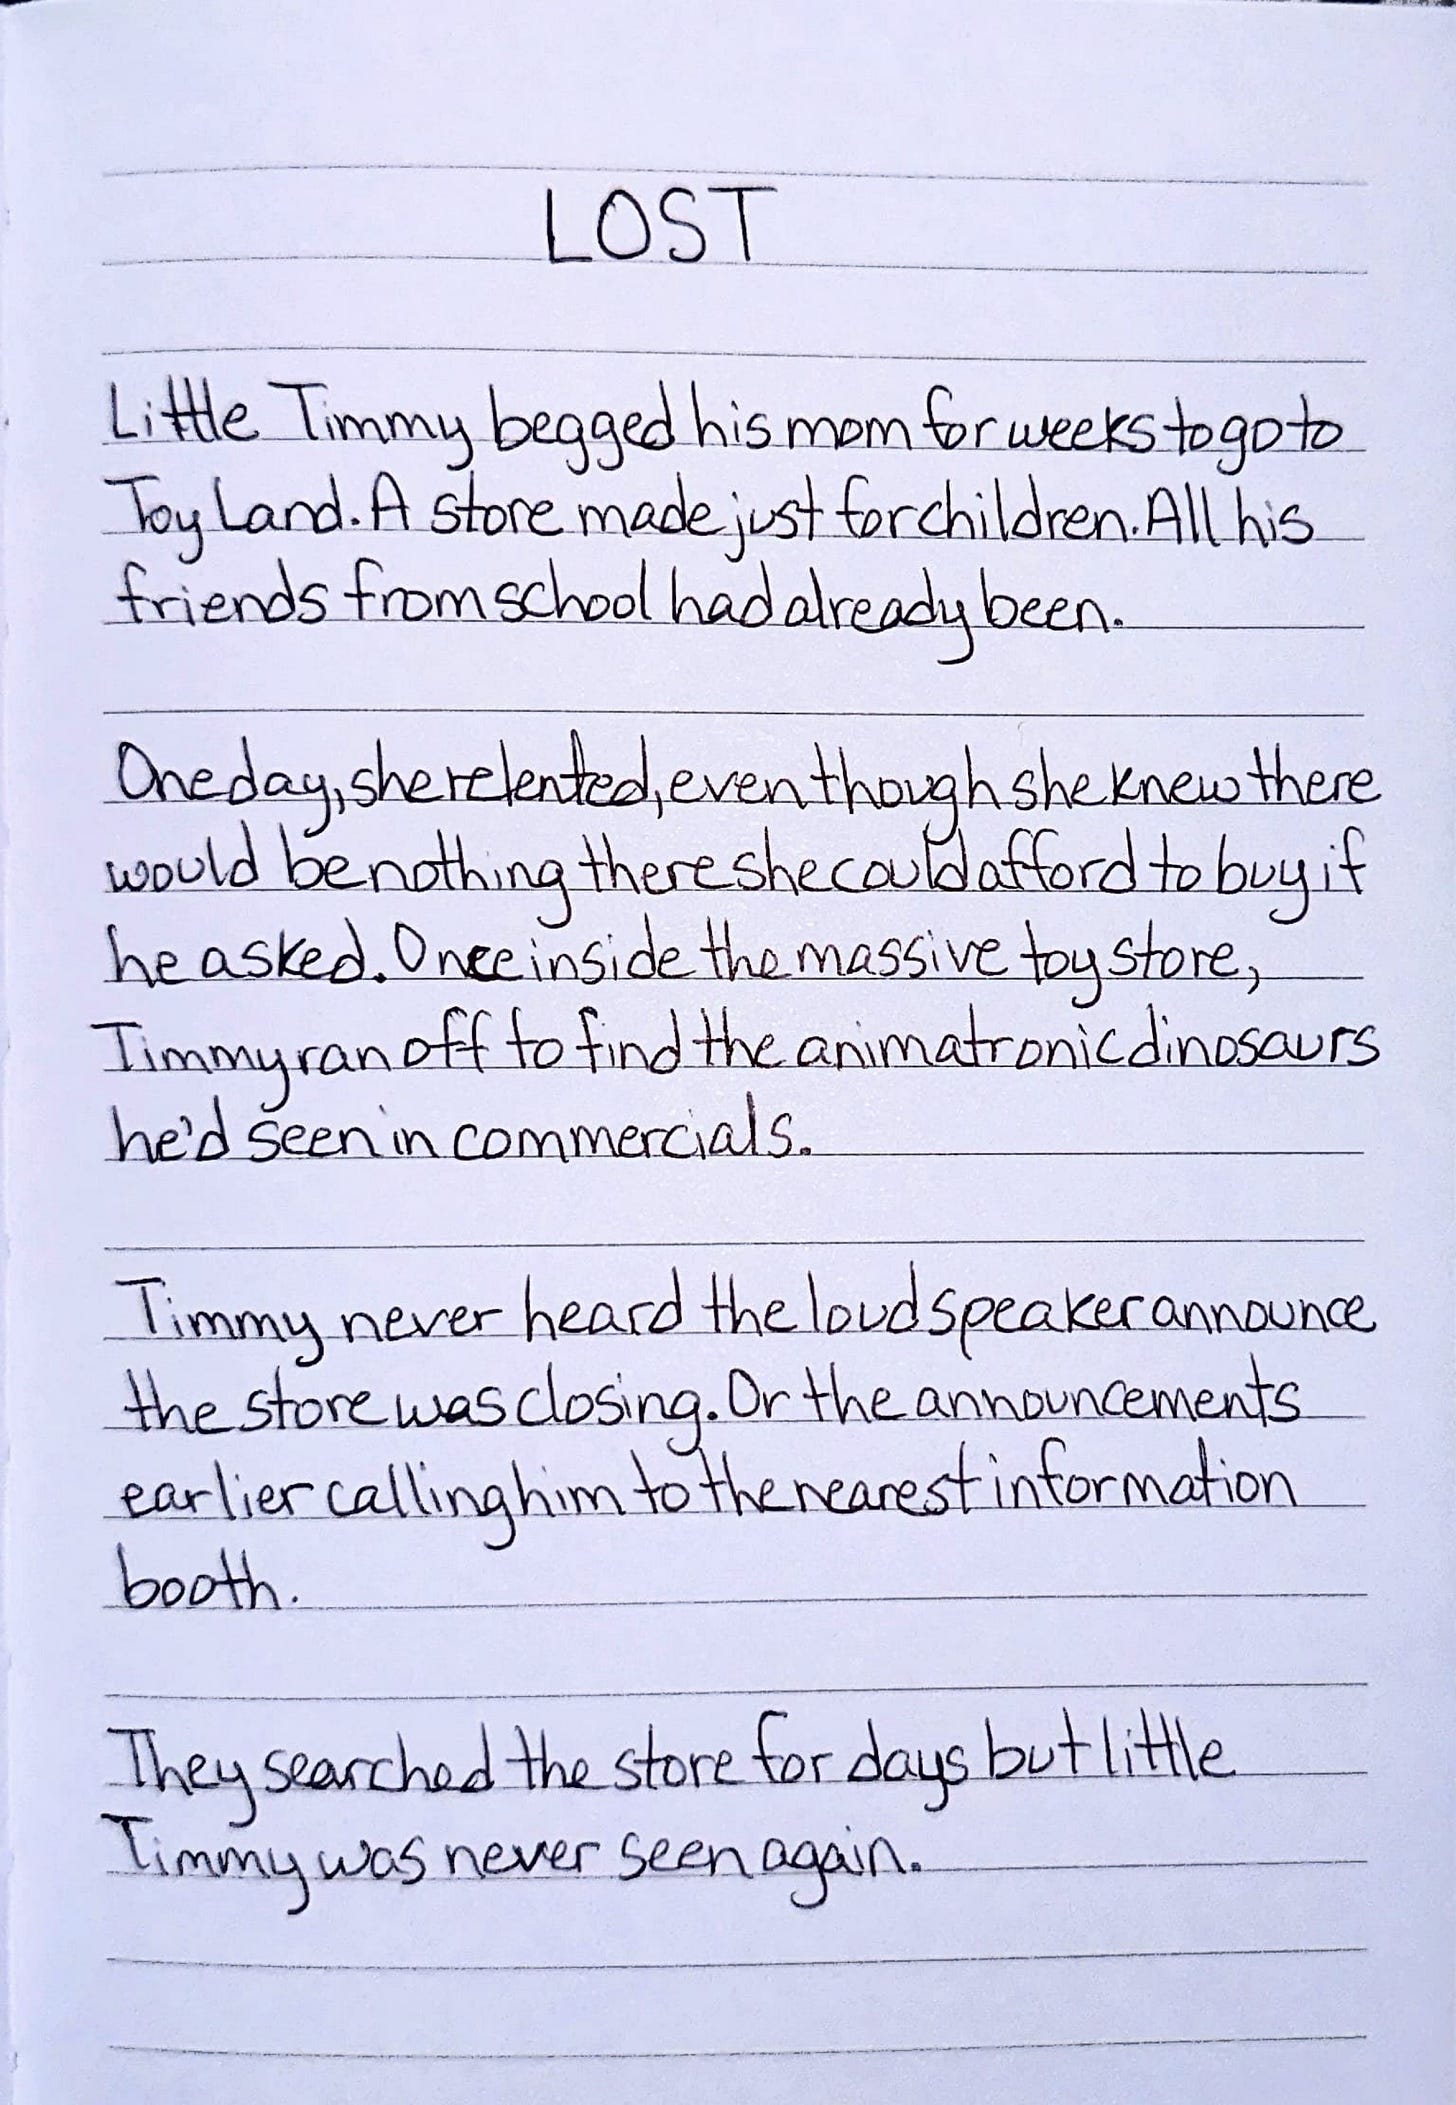 LOST
Little Timmy begged his mom for weeks to go to
Toy Land. A store made just for children. All his
friends from school had already been.
One day, she relented, even though she knew there
would be nothing there she could afford to buy if
he asked. Once inside the massive toy store,
Timmy ran off to find the animatronic dinosaurs
he'd seen in commercials.
Timmy never heard the loudspeaker announce
the store was closing. Or the announcements
earlier calling him to the nearest information
booth.
They searched the store for days but little
Timmy was never seen again.